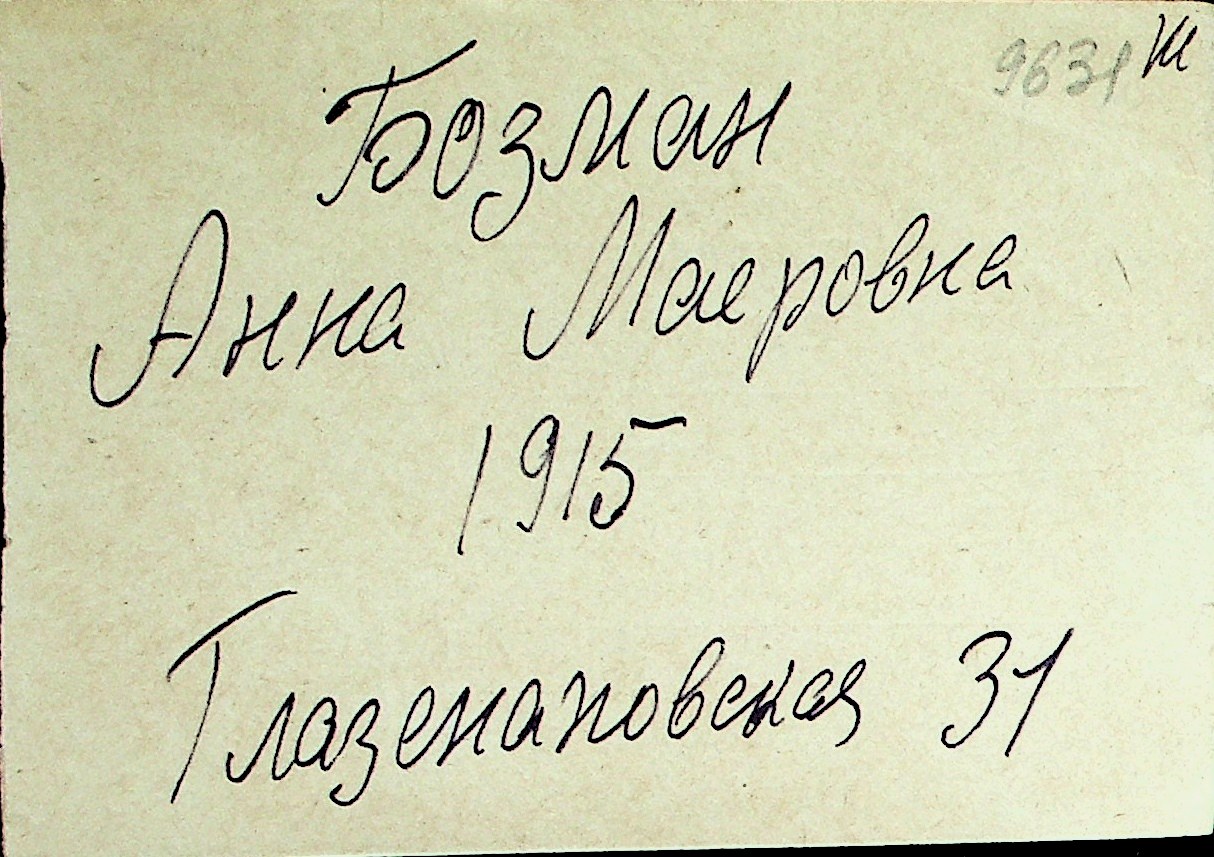 9631 Ж
Бозман
Анна Маеровна
1915
Глазенаповская 31